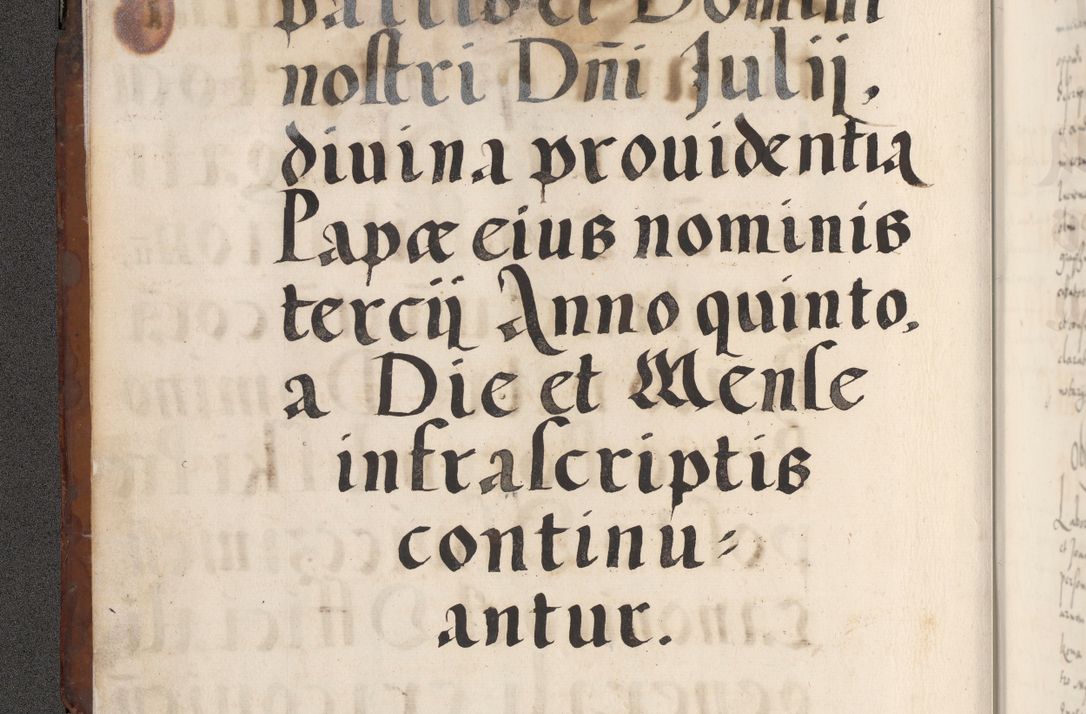 patris et Domini
nostri Dñi Julij,
diuina prouidentia
Papæ eius nominis
tercij Anno quinto,
a Die et Mense
infrascriptis
continu=
antur.